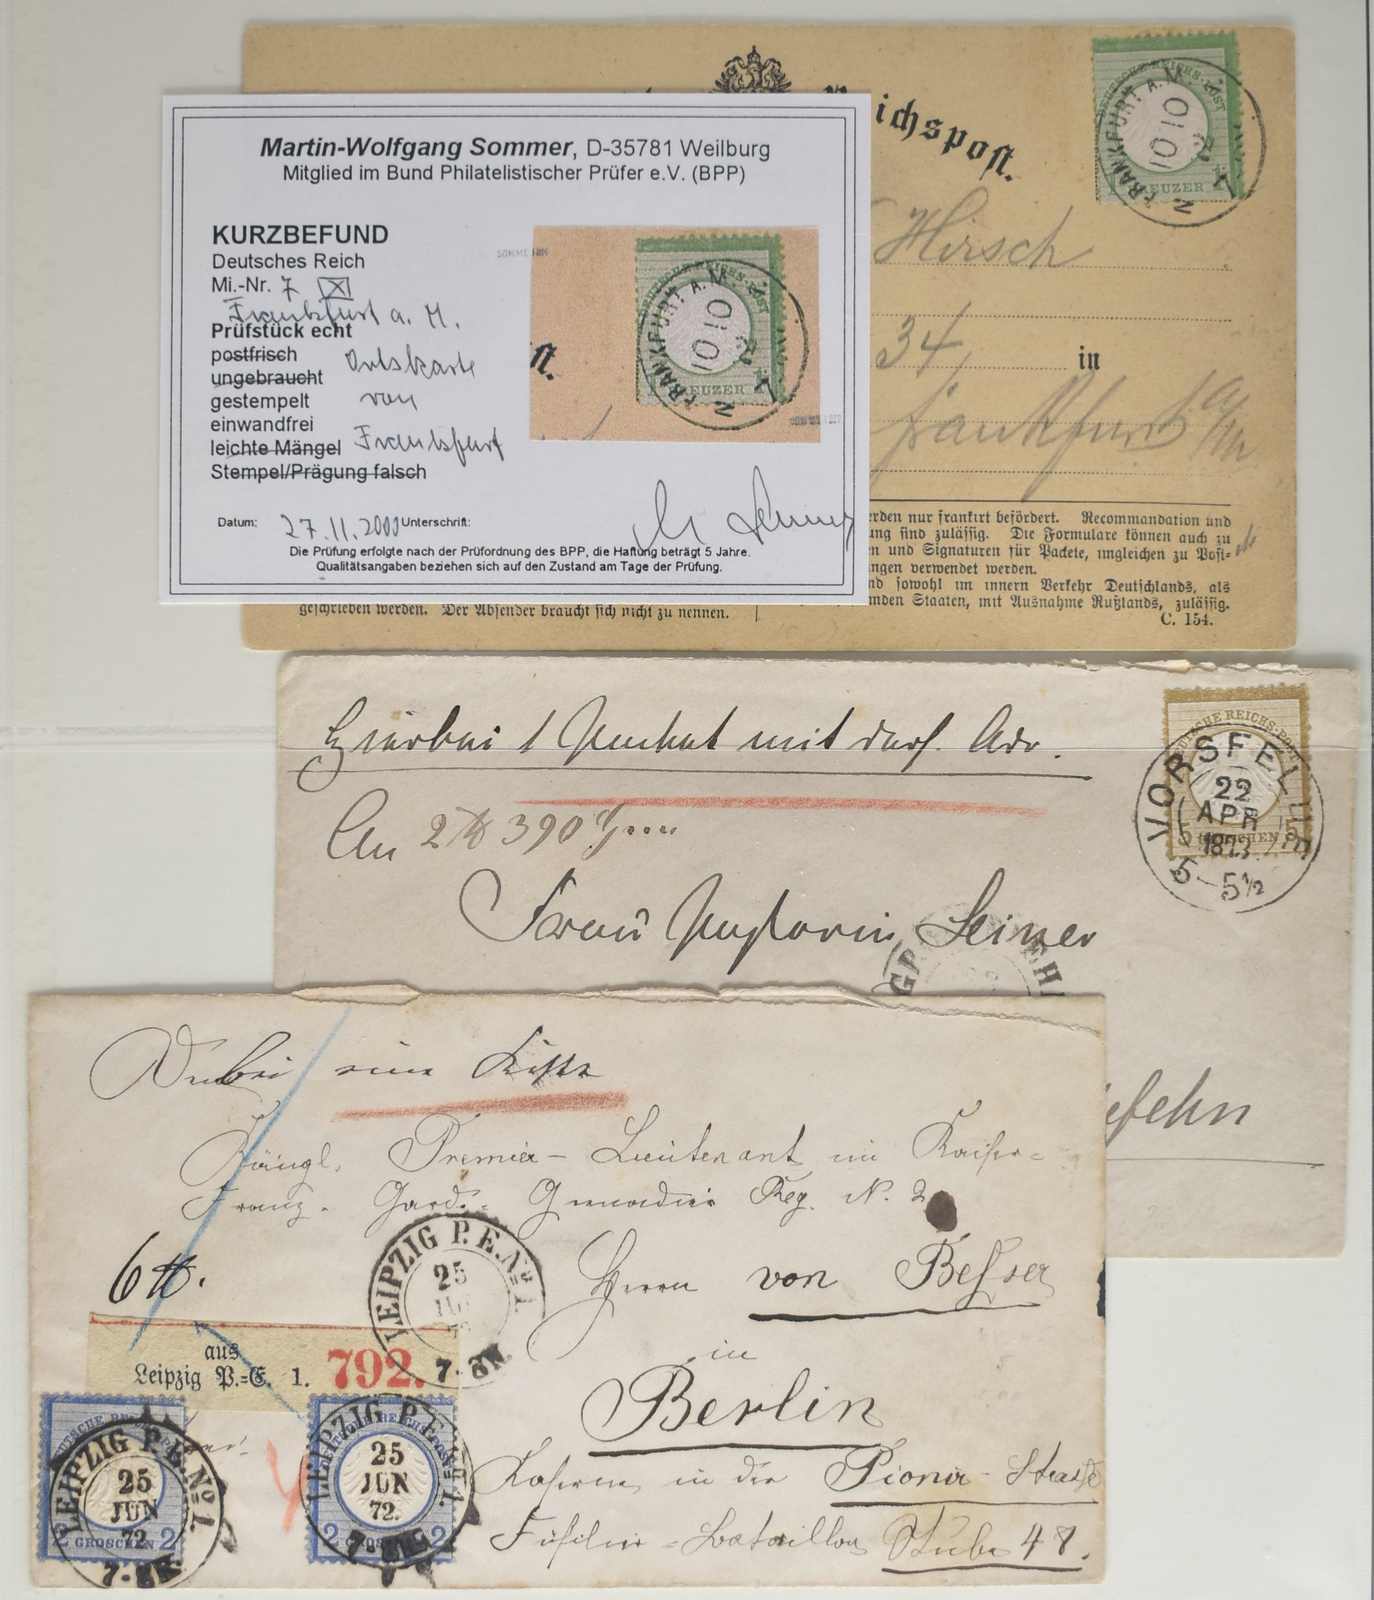 Martin-Wolfgang Sommer, D-35781 Weilburg
Mitglied im Bund Philatelistischer Prüfer e.V. (BPP)
KURZBEFUND
Deutsches Reich
Mi.-Nr. 7
Frankfurt a. M.
Prüfstück echt
postfrisch Ortskarte
ungebraucht
gestempelt von
einwandfrei
leichte Mängel Frankfurt
Stempel/Prägung falsch
Datum: 27.11.2000 Unterschrift:
Die Prüfung erfolgte nach der Prüfordnung des BPP, die Haftung beträgt 5 Jahre.
Qualitätsangaben beziehen sich auf den Zustand am Tage der Prüfung.
FRANKFURT A. M.
KREUZER
ft.
eichspost.
DEUTSCHE REICHS-POST
FRANKFURT A. M.
KREUZER
Hirsch
34, in
Frankfurt a/M
erden nur frankirt befördert. Recommandation und
ung sind zulässig. Die Formulare können auch zu
en und Signaturen für Packete, imgleichen zu Post-
ngen verwendet werden.
nd sowohl im innern Verkehr Deutschlands, als
mden Staaten, mit Ausnahme Rußlands, zulässig.
geschrieben werden. Der Absender braucht sich nicht zu nennen.
C. 154.
Hierbei 1 Packet mit ders. Adr.
An 2 ℔ 390
Frau Pastorin
DEUTSCHE REICHS-POST
VORSFELDE
22
APR
1873
5-5½
efehn
Anbei eine Kiste
Königl. Premier-Lieutenant im Kaiser-
Franz-Gard.-Grenadier Reg. N. 2
6 ℔.
Herrn von Besser
in
Berlin
Kaserne in der Pionir-Straße
Füsilier-Bataillon Stube 48.
LEIPZIG P.E.No 1.
25
JUN
72
7-8N.
aus
Leipzig P.-E. 1. 792.
LEIPZIG P.E.No 1.
25
JUN
72.
2 GROSCHEN 2
7-8N.
LEIPZIG P.E.No 1.
25
JUN
72.
2 GROSCHEN 2